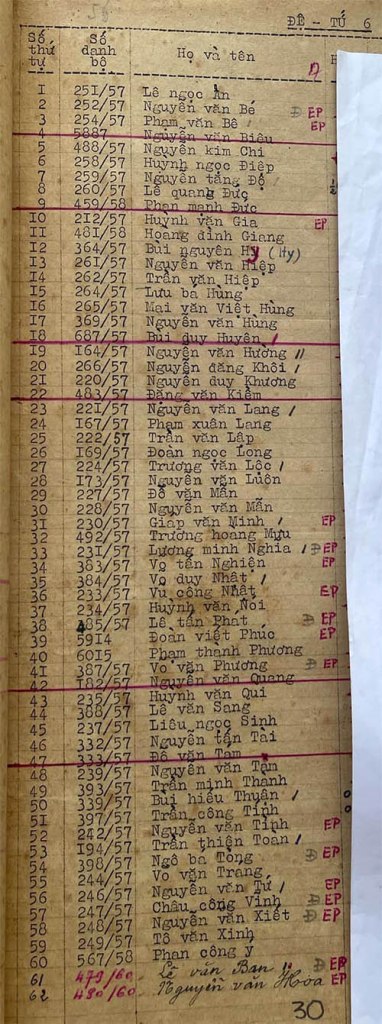 ĐỆ - TỨ 6
Số thứ tự Số danh bộ Họ và tên
1 251/57 Lê ngọc Ẩn
2 252/57 Nguyễn văn Bé Đ EP
3 254/57 Phạm văn Bê EP
4 5887 Nguyễn văn Biêu
5 488/57 Nguyễn kim Chi
6 258/57 Huỳnh ngọc Điệp
7 259/57 Nguyễn tăng Độ
8 260/57 Lê quang Đức
9 459/58 Phan mạnh Đức
10 212/57 Huỳnh văn Gia EP
11 481/58 Hoàng đình Giang
12 364/57 Bùi nguyên Hy (Hy)
13 261/57 Nguyễn văn Hiệp
14 262/57 Trần văn Hiệp
15 264/57 Lưu bá Hùng
16 265/57 Mai văn Việt Hùng
17 369/57 Nguyễn văn Hùng
18 687/57 Bùi duy Huyên
19 164/57 Nguyễn văn Hương
20 266/57 Nguyễn đăng Khôi
21 220/57 Nguyễn duy Khương
22 483/57 Đặng văn Kiêm
23 221/57 Nguyễn văn Lang
24 167/57 Phạm xuân Lang
25 222/57 Trần văn Lập
26 169/57 Đoàn ngọc Long
27 224/57 Trương văn Lộc
28 173/57 Nguyễn văn Luôn
29 227/57 Đỗ văn Mẫn
30 228/57 Nguyễn văn Mẫn
31 230/57 Giáp văn Minh EP
32 492/57 Trương hoàng Mưu
33 231/57 Lương minh Nghĩa Đ EP
34 383/57 Võ tấn Nghiện EP
35 384/57 Võ duy Nhật
36 233/57 Vũ công Nhật EP
37 234/57 Huỳnh văn Nơi
38 385/57 Lê tấn Phát Đ EP
39 5914 Đoàn việt Phúc EP
40 6015 Phạm thành Phương
41 387/57 Võ văn Phương Đ EP
42 182/57 Nguyễn văn Quang
43 235/57 Huỳnh văn Qui
44 388/57 Lê văn Sang
45 237/57 Liêu ngọc Sinh
46 332/57 Nguyễn tấn Tài
47 333/57 Đỗ văn Tam
48 239/57 Nguyễn văn Tám
49 393/57 Trần minh Thanh
50 339/57 Bùi hiếu Thuận
51 397/57 Trần công Tỉnh
52 242/57 Nguyễn văn Tỉnh EP
53 194/57 Trần thiện Toàn
54 398/57 Ngô bá Tòng Đ EP
55 244/57 Võ văn Trang
56 246/57 Nguyễn văn Tư EP
57 247/57 Châu công Vinh Đ EP
58 248/57 Nguyễn văn Xiết Đ EP
59 249/57 Tô văn Xinh
60 567/58 Phan công ý
61 479/60 Lê văn Ban Đ EP
62 480/60 Nguyễn văn Hòa EP
30